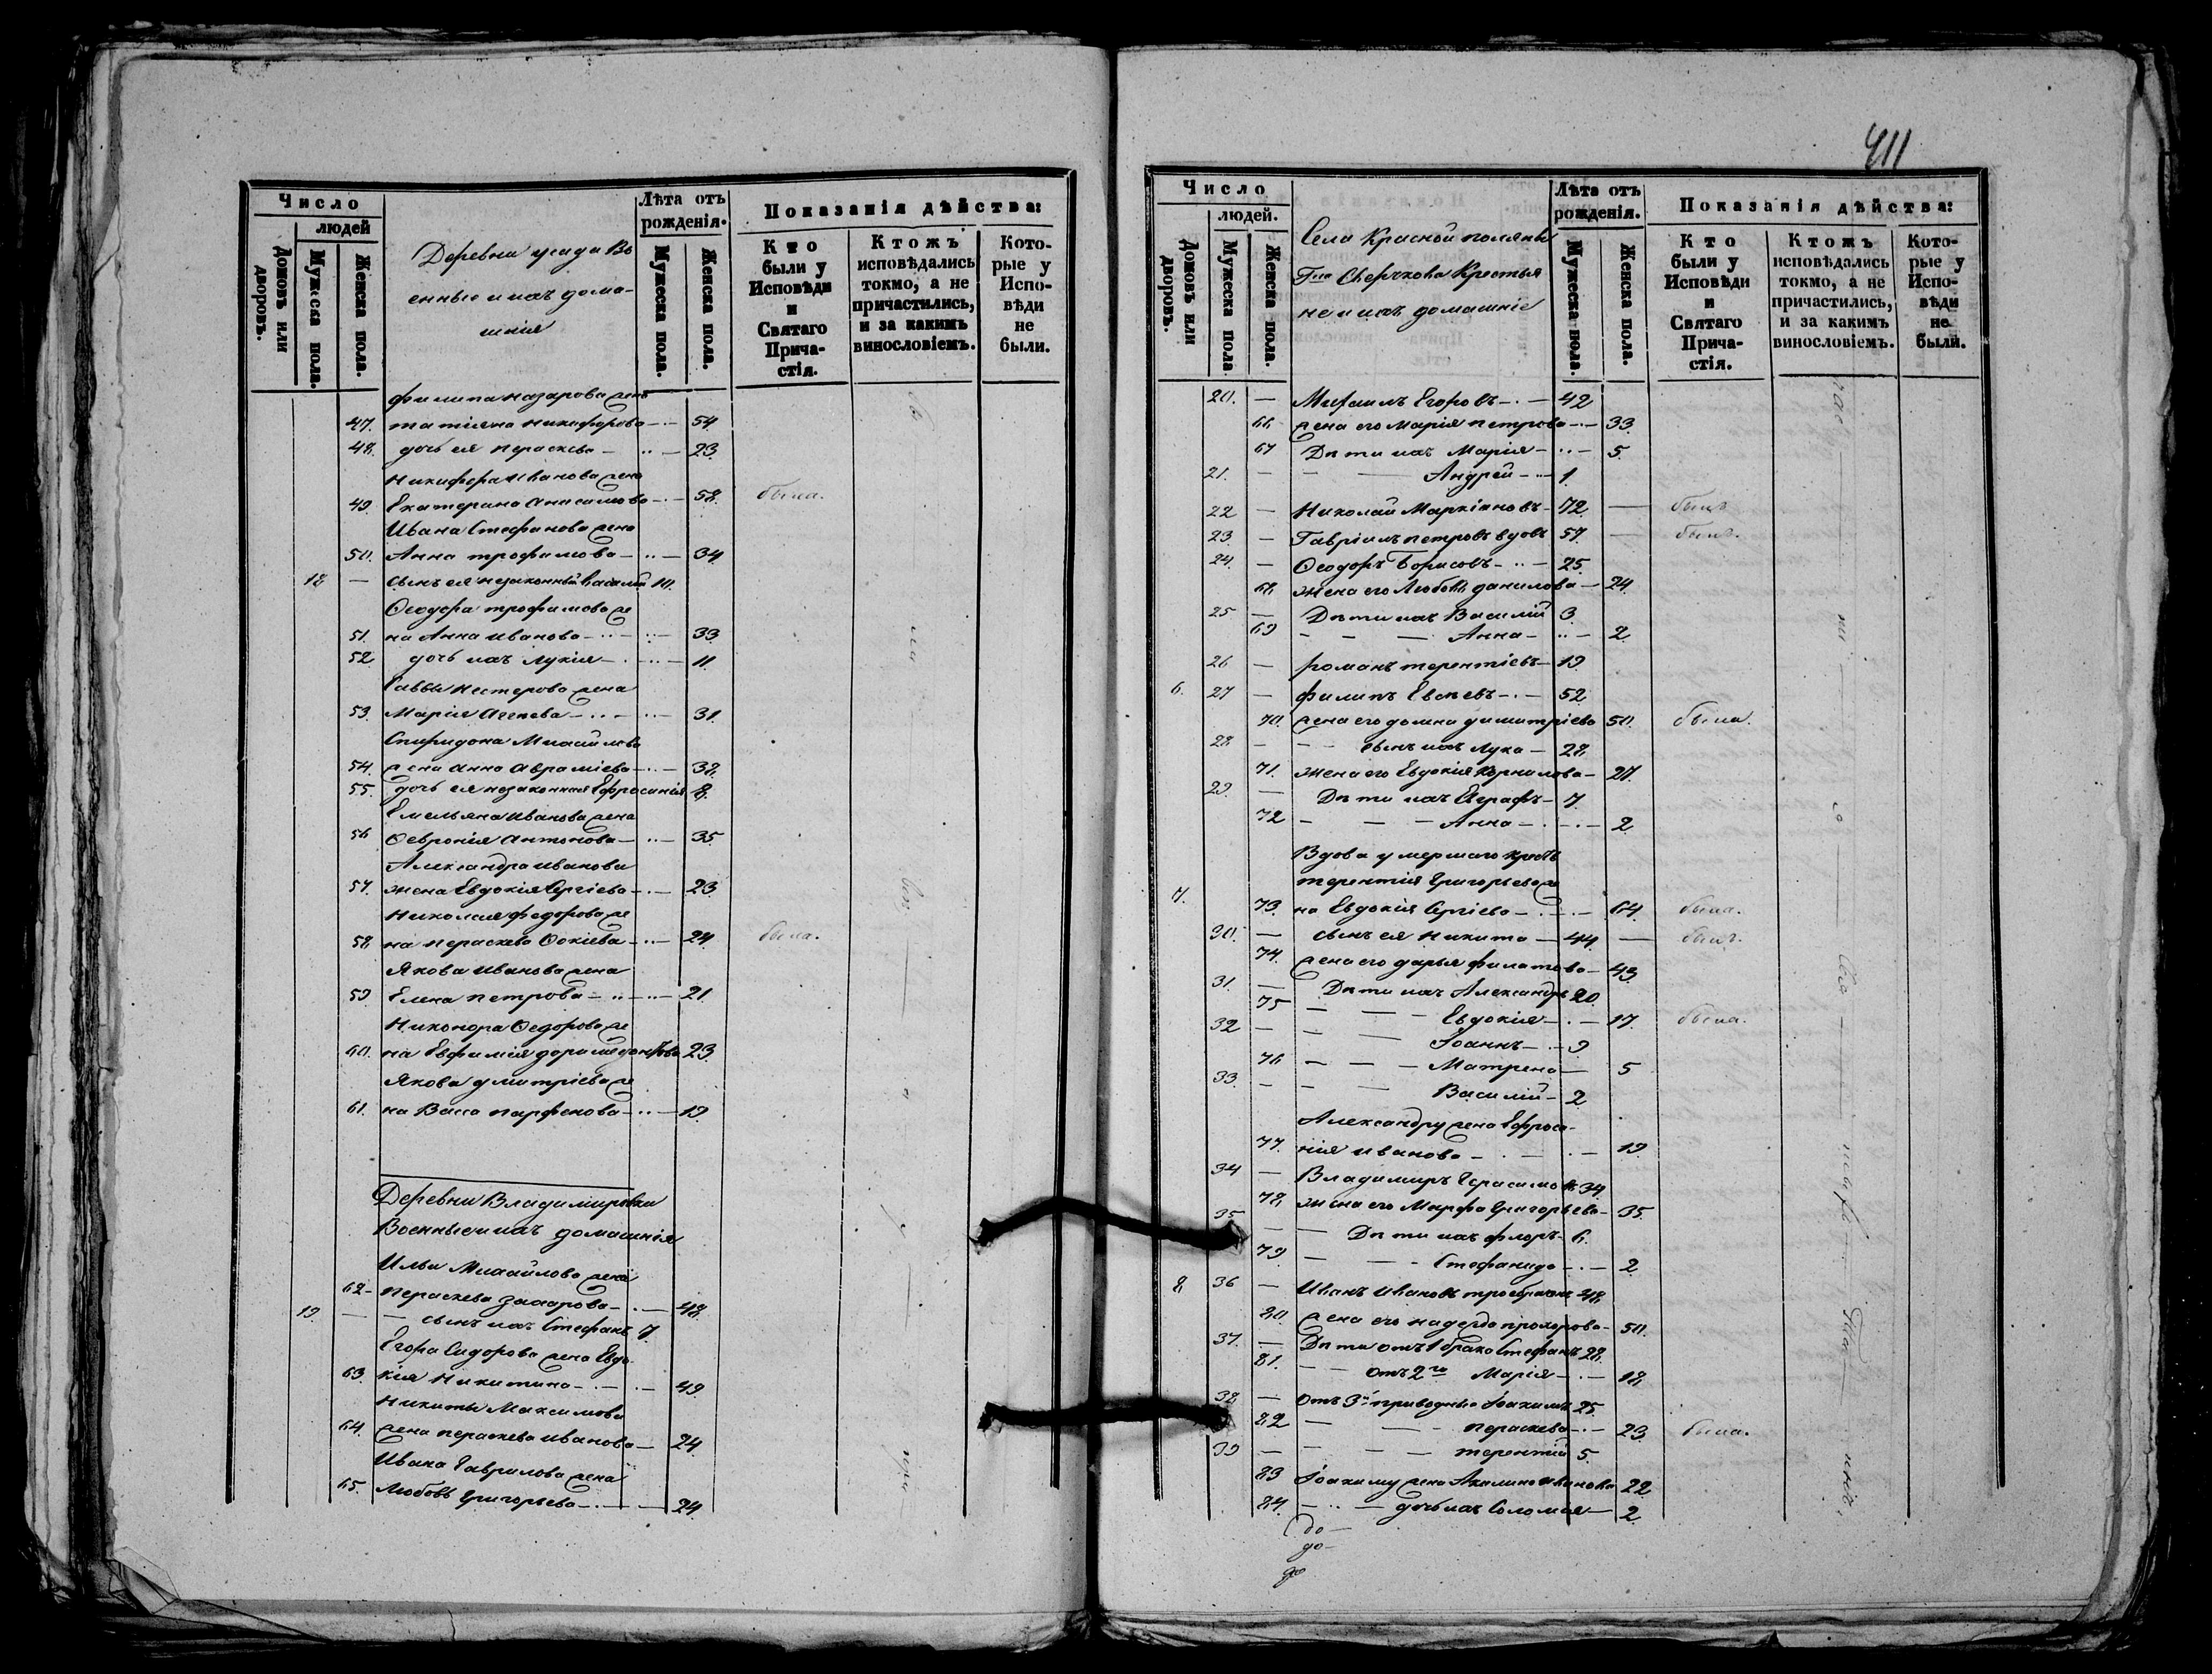 Число
людей
Домовъ или дворовъ.
Мужеска пола.
Женска пола.
Деревни
Во
енные и ихъ дома-
шнія
Лѣта отъ рожденія.
Мужеска пола.
Женска пола.
Показанія дѣйства:
Кто были у Исповѣди и Святаго Прича-стія.
Ктожъ исповѣдались токмо, а не причастились, и за какимъ винословіемъ.
Кото-рые у Испо-вѣди не были.
Филипа Назарова жена
47. Татіяна Никифорова 54
48. дочь ея Параскева 23.
Никифора Иванова жена
49. Екатерина Анисимова 58. была.
Ивана Стефанова жена
50. Анна Трофимова 34
18 — сынъ ея незаконный Василій 10.
Ѳеодора Трофимова же
51. на Анна Иванова 33
52 дочь ихъ Лукія 11.
Саввы Нестерова жена
53. Марія 31.
Спиридона Михайлова
54. жена Анна Авраміева 38.
55. дочь ея незаконная Ефросинія 8.
Емельяна Иванова жена
56 Ѳевронія Антонова 35
Александра Иванова
57. жена Евдокія Сергіева 23
Николая Федорова же
58. на Параскева 24 была.
Якова Иванова жена
59 Елена Петрова 21
Никонора Ѳедорова же
60. на Евфимія 23
Якова Дмитріева же
61. на Васса Парфенова 19
Деревни Владимировки
Военные и ихъ домашнія
Ильи Михайлова жена
62 Параскева Захарова 48.
19. — сынъ ихъ Стефанъ 7
Егора Сидорова жена Евдо
63. кія Никитина 49.
Никиты Максимова
64. жена Параскева Иванова 24
Ивана Гаврилова жена
65. Любовь Григорьева 24
411
Число
людей.
Домовъ или дворовъ.
Мужеска пола.
Женска пола.
Села Красной поляны
Сверчкова Крестья
не и ихъ домашніе
Лѣта отъ рожденія.
Мужеска пола.
Женска пола.
Показанія дѣйства:
Кто были у Исповѣди и Святаго Прича-стія.
Ктожъ исповѣдались токмо, а не причастились, и за какимъ винословіемъ.
Кото-рые у Испо-вѣди не были.
20. — Михаилъ Егоровъ 42
66 жена его Марія Петрова 33.
67 Дѣти ихъ Марія 5.
21. — Андрей 1.
22 — Николай Маркіяновъ 72 — былъ
23. — Гавріилъ Петровъ вдовъ 57. — былъ.
24. — Ѳеодоръ Борисовъ 25
68 жена его Любовь Данилова 24.
25 — Дѣти ихъ Василій 3.
69 Анна 2
26 — Романъ Терентіевъ 19
6. 27 — Филипъ Евсѣевъ 52
70. жена его Домна Димитріева 50. была.
28 — сынъ ихъ Лука 28.
71. жена его Евдокія Корнилова 27.
29. — Дѣти ихъ Евграфъ 7
72 Анна 2
Вдова умершаго
Терентія Григорьева же
7. 73. на Евдокія Сергіева 64. была.
30. — сынъ ея Никита 44 — былъ.
74. жена его Дарья Филатова 43.
31. — Дѣти ихъ Александръ 20.
75 Евдокія 17. была.
32 — Іоаннъ 9
76 Матрена 5
33. — Василій 2
Александру жена Ефроси-
77. нія Иванова 19
34 — Владимиръ Герасимовъ 34.
78. жена его Марфа Григорьева 35.
35 — Дѣти ихъ Флоръ 6.
79. Стефанида 2
8 36 — Иванъ Ивановъ 48.
80. жена его Надежда Прохорова 50.
37. — Дѣти отъ 1 брака Стефанъ 28.
81. отъ 2го Марія 18
38 — Отъ 3 приводные Іоакимъ 25
82 Параскева 23 была.
39 — Терентій 5.
83 Іоакиму жена Акилина Иванова 22
84. дочь ихъ Соломія 2
до
до
до